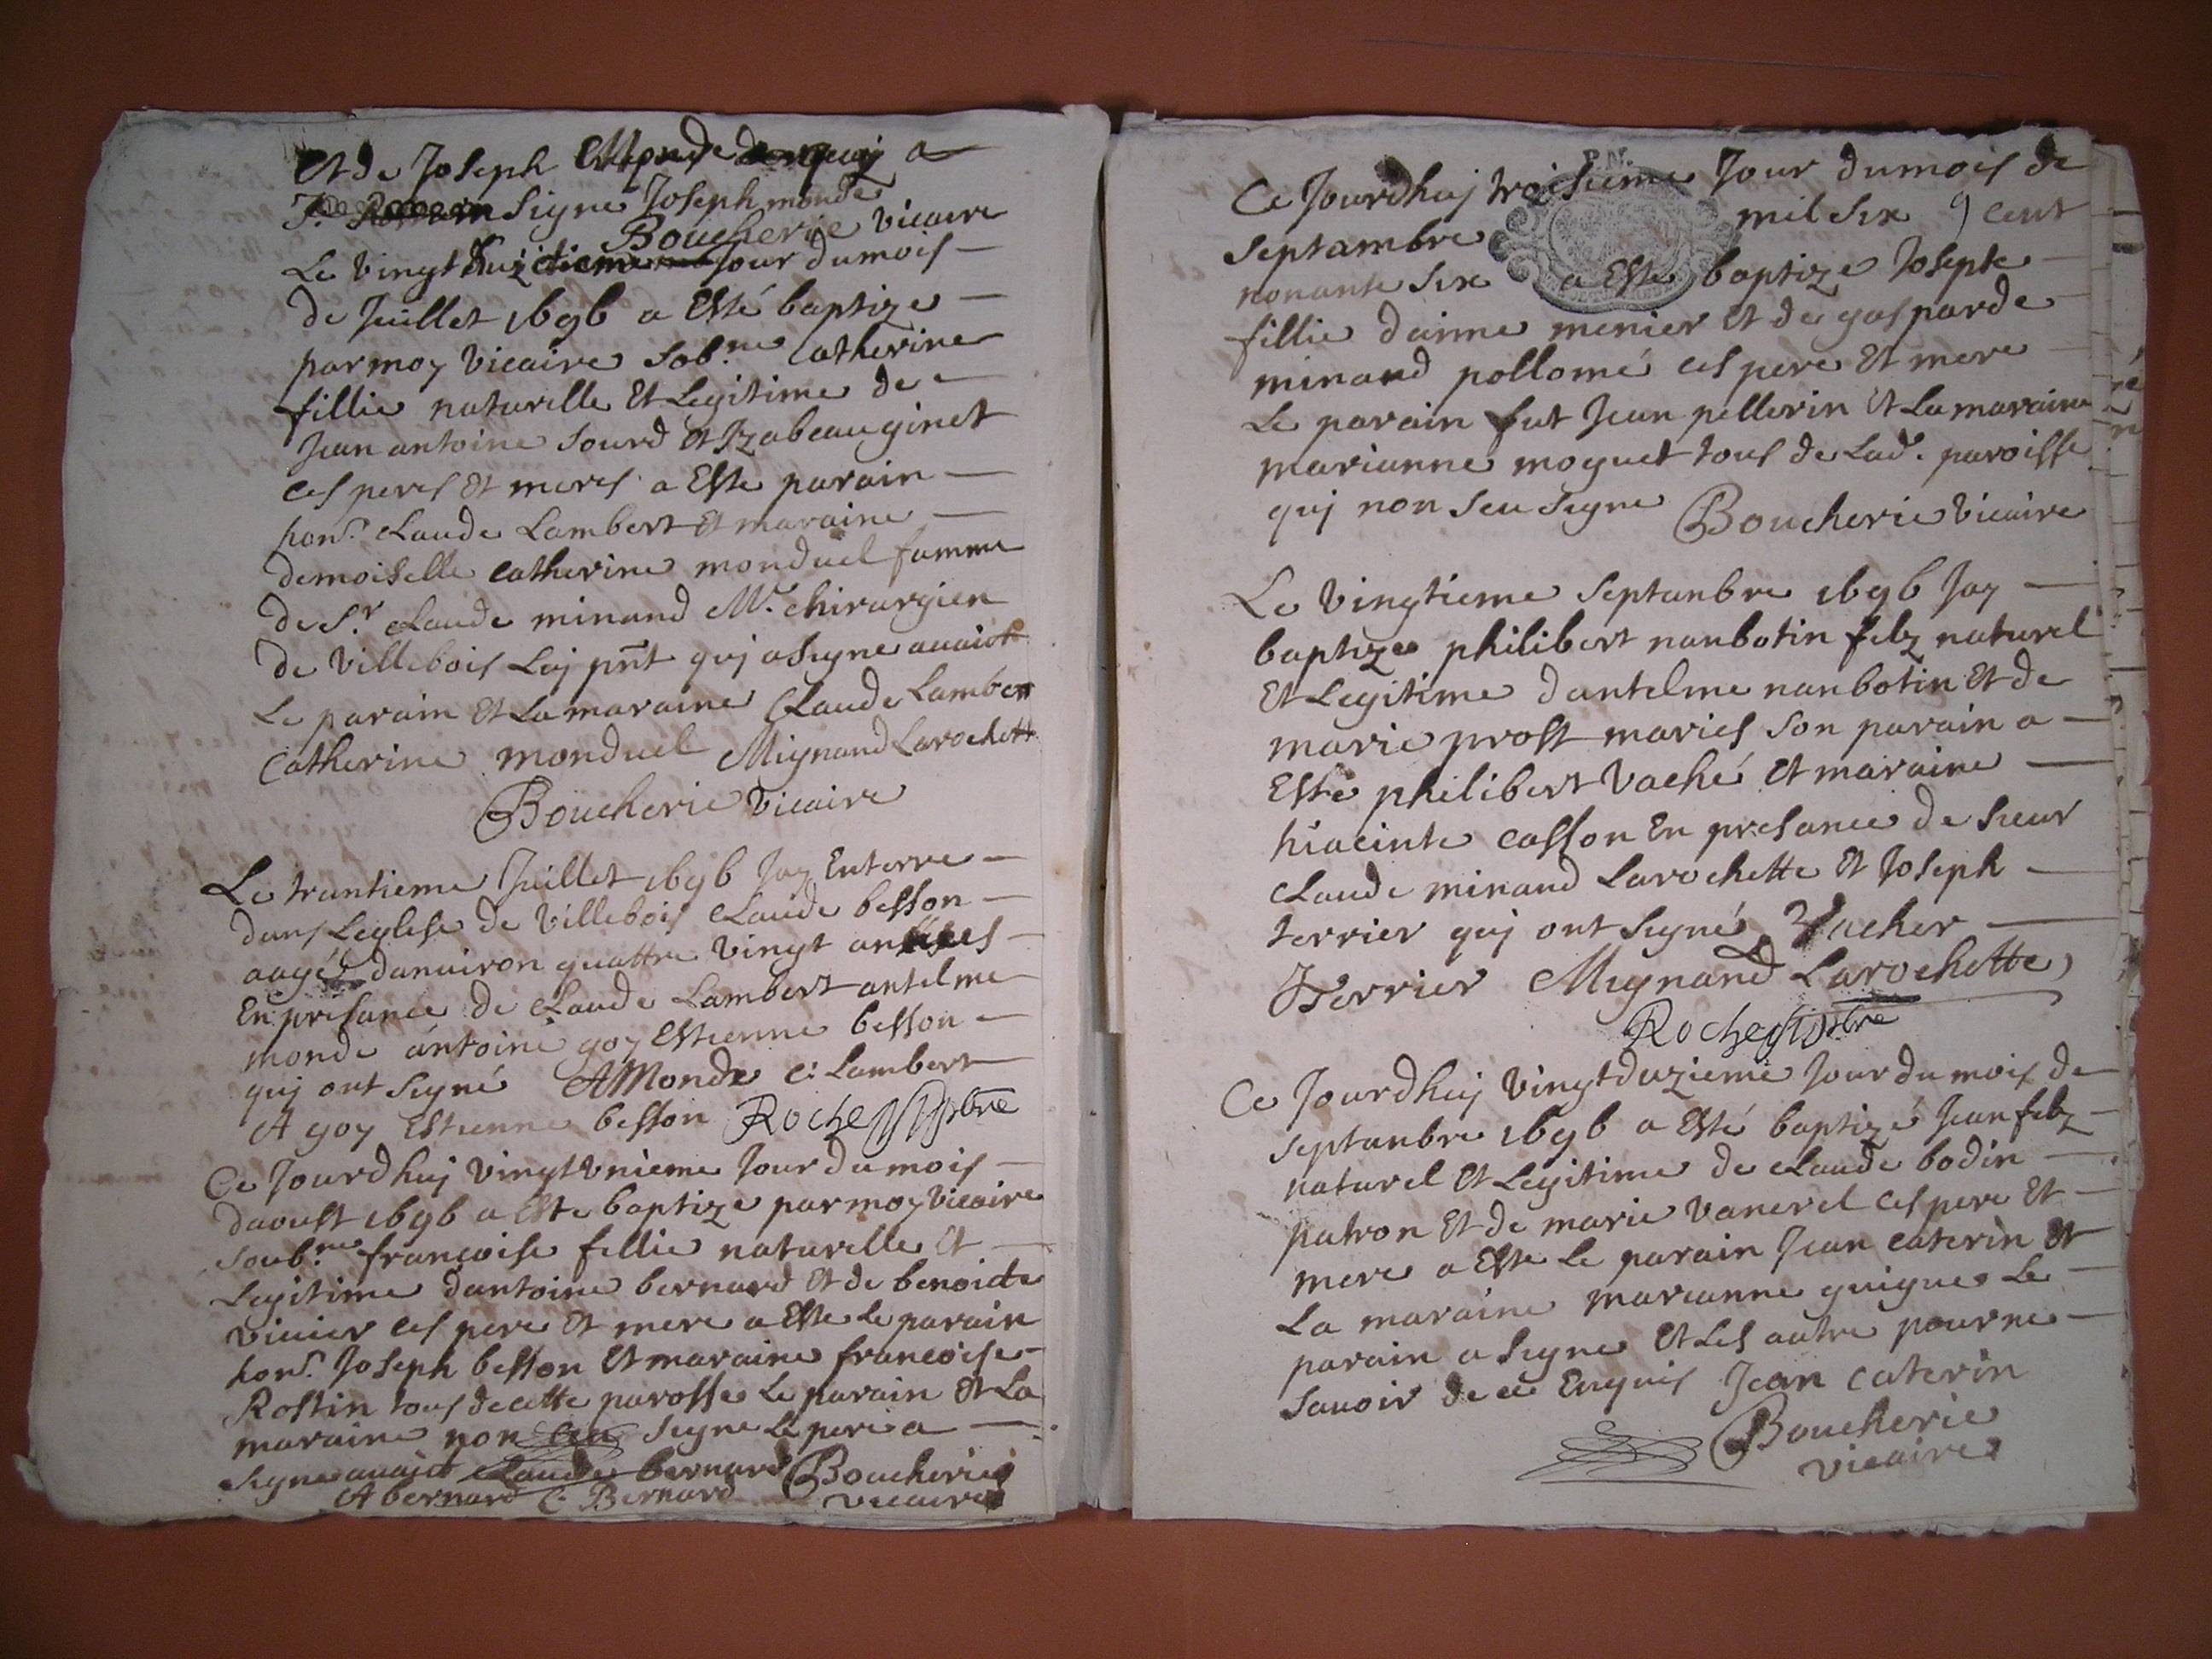 Et de Joseph Monde a
Signe Joseph monde
Boucherie vicaire
Le vingt Jour dumois
de Juillet 1696 a Esté baptize
par moy vicaire sob.ne Catherine
fillie naturelle Et Legitime de
Jean antoine sourd Et Izabeau ginet
ces peres Et meres a Este parain
hon.r Claude Lambert Et maraine
demoiselle catherine monduel famme
de S.r Claude minand M.e chirurgien
de villebois Laj pnt quj a signe avaict
Le parain Et La maraine Claude Lambert
Catherine monduel Mignand Larochette
Boucherie vicaire
Le trantieme Juillet 1696 Jay Enterre
dans Leglese de villebois Claude besson
aagé danviron quattre vingt
En presance de Claude Lambert antelme
monde antoine goy Estienne besson
quj ont signé AMonde c: Lambert
A goy Estienne besson Roche ptbre
Ce Jourdhuj vingtvnieme Jour du mois
daoust 1696 a Este baptize par moy vicaire
soub.ne francoise fillie naturelle Et
Legitime dantoine bernard Et de benoicte
vinier ces pere Et mere a Este Le parain
hon.r Joseph besson Et maraine francoise
Rostin tous de cette parosse Le parain Et La
maraine non signe Le pere a
signe avaict Claude bernard Boucherie
A bernard C. Bernard vicaire
P.N.
Ce Jourdhuj troisieme Jour dumois de
septambre mil six cent
nonante six a Este baptize Josepte
fillie daime menier Et de gasparde
minand pollomé ces pere Et mere
Le parain fut Jean pellerin Et La maraine
marianne moguet tous de Lad. paroisse
quj non seu signe Boucherie vicaire
Le vingtieme septanbre 1696 Jay
baptize philibert nanbotin felz naturel
Et Legitime dantelme nanbotin Et de
marie prost maries son parain a
Este philibert vaché Et maraine
hiacinte casson En presance de sieur
Claude minand Larochette Et Joseph
terrier quj ont signé Vacher
Terrier Mignand Larochette
Roche ptbre
Ce Jourdhuj vingtduzieme Jour du mois de
septanbre 1696 a Esté baptizé Jean felz
naturel Et Legitime de Claude bodin
patron Et de marie vanerel ces pere Et
mere a Este Le parain Jean caterin Et
La maraine marianne guigue Le
parain a signe Et Les autre pour ne
savoir de ce Enquis Jean caterin
Boucherie
vicaire